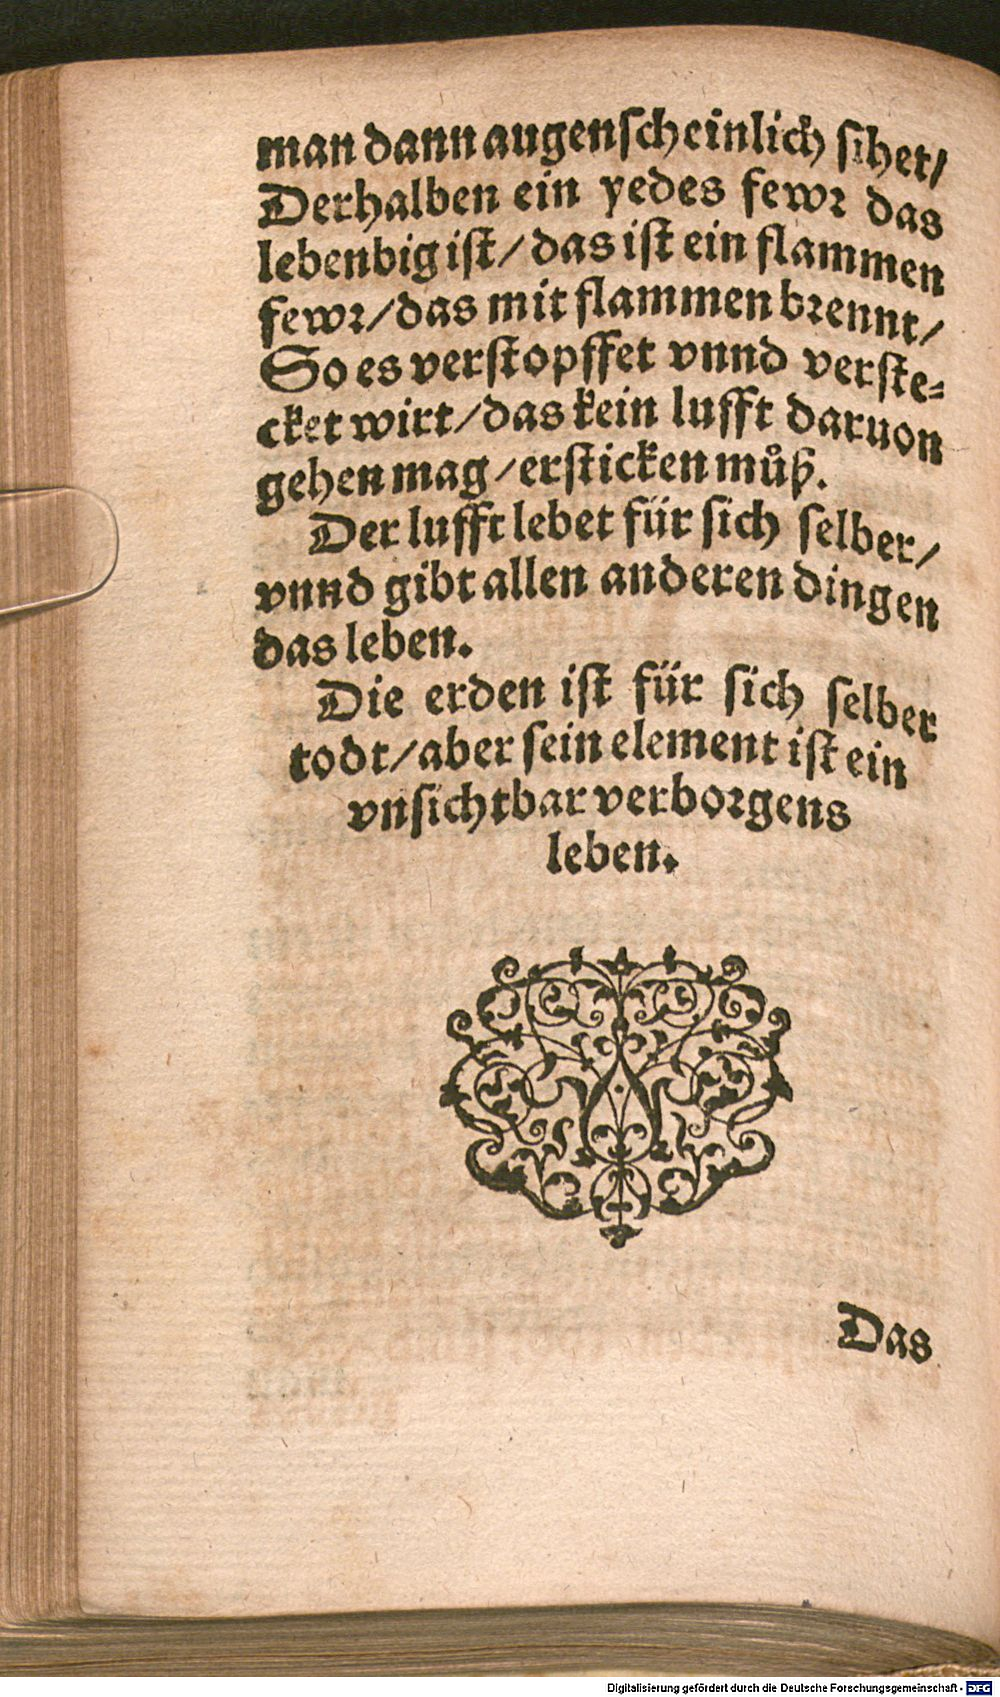 man dann augenscheinlich sihet/
Derhalben ein yedes fewr das
lebenbig ist/ das ist ein flammen
fewr/ das mit flammen brennt/
So es verstopffet vnnd verste-
cket wirt/ das kein lufft daruon
gehen mag/ ersticken můß.
Der lufft lebet für sich selber/
vnnd gibt allen anderen dingen
das leben.
Die erden ist für sich selber
todt/ aber sein element ist ein
vnsichtbar verborgens
leben.
Das
Digitalisierung gefördert durch die Deutsche Forschungsgemeinschaft - DFG